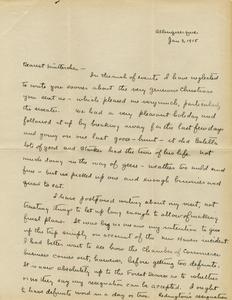 Albuquerque
Jan 3, 1918
Dearest Mutterchen -
In the rush of events I have neglected
to write you sooner about the very generous Christmas
you sent us - which pleased us very much, particularly
the sweater. We had a very pleasant holiday and
followed it up by breaking away for the last few days
and going on one last goose-hunt
lots of good and had the time of his life. Not
much doing in the way of geese - weather too mild and
fine - but we picked up one and enough
great to eat.
I have postponed writing about my visit, not
wanting things to let up long enough to allow of making
great plans. It was my intention to give
up the trip entirely, on account of the new House incident
I had better wait to see how the Chamber of Commerce
business comes out, however, before getting too definite.
It is now absolutely up to the Forest Service as to whether
or when they say my resignation can be accepted. I ought
to have definite word in a day or two. Redington's resignation